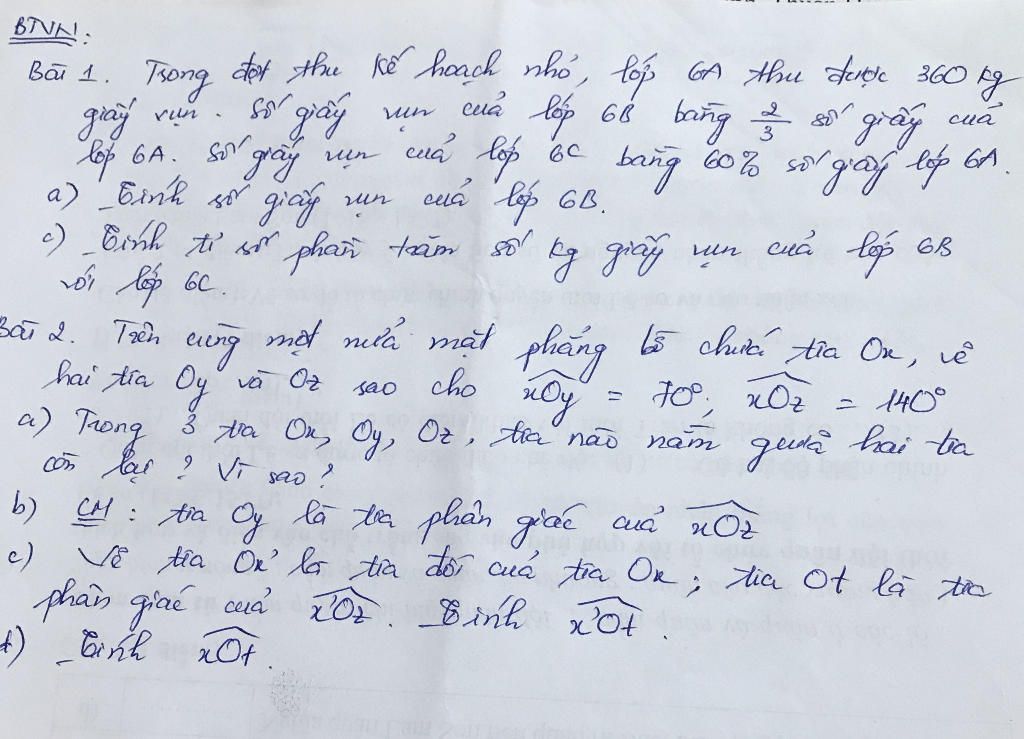 BTVN:
Bài 1. Trong đợt thu kế hoạch nhỏ, lớp 6A thu được 360 kg
giấy vụn. Số giấy vụn của lớp 6B bằng 2/3 số giấy của
lớp 6A. Số giấy vụn của lớp 6C bằng 60% số giấy lớp 6A.
a) Tính số giấy vụn của lớp 6B.
c) Tính tỉ số phần trăm số kg giấy vụn của lớp 6B
với lớp 6C.
Bài 2. Trên cùng một nửa mặt phẳng bờ chứa tia Ox, vẽ
hai tia Oy và Oz sao cho xOy = 70°; xOz = 140°
a) Trong 3 tia Ox, Oy, Oz, tia nào nằm giữa hai tia
còn lại? Vì sao?
b) CM: tia Oy là tia phân giác của xOz
c) Vẽ tia Ox' là tia đối của tia Ox; tia Ot là tia
phân giác của x'Oz. Tính x'Ot.
d) Tính xOt.